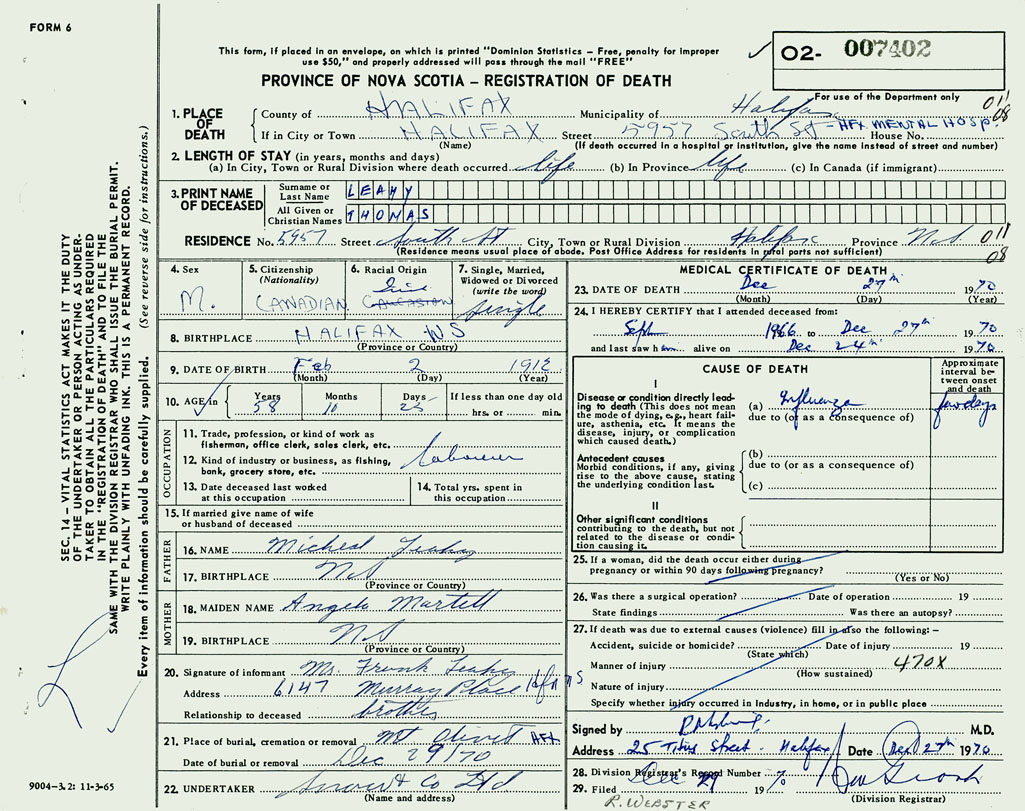 FORM 6
This form, if placed in an envelope, on which is printed "Dominion Statistics – Free, penalty for improper
use $50," and properly addressed will pass through the mail "FREE"
02- 007402
PROVINCE OF NOVA SCOTIA – REGISTRATION OF DEATH
For use of the Department only
011
08
1. PLACE OF DEATH
County of HALIFAX Municipality of Halifax
If in City or Town HALIFAX Street 5957 South St - HFX MENTAL HOSP. House No.
(Name) (If death occurred in a hospital or institution, give the name instead of street and number)
2. LENGTH OF STAY (in years, months and days)
(a) In City, Town or Rural Division where death occurred life (b) In Province life (c) In Canada (if immigrant)
3. PRINT NAME OF DECEASED
Surname or Last Name LEAHY
All Given or Christian Names THOMAS
RESIDENCE No. 5957 Street South St City, Town or Rural Division Halifax Province N.S. 011
(Residence means usual place of abode. Post Office Address for residents in rural parts not sufficient) 08
4. Sex
M.
5. Citizenship
(Nationality)
CANADIAN
6. Racial Origin
CAUCASIAN
7. Single, Married,
Widowed or Divorced
(write the word)
Single
8. BIRTHPLACE HALIFAX NS
(Province or Country)
9. DATE OF BIRTH Feb 2 1912
(Month) (Day) (Year)
10. AGE in Years Months Days If less than one day old
58 10 25 hrs. or min.
OCCUPATION
11. Trade, profession, or kind of work as
fisherman, office clerk, sales clerk, etc.
Labourer
12. Kind of industry or business, as fishing,
bank, grocery store, etc.
13. Date deceased last worked
at this occupation
14. Total yrs. spent in
this occupation
15. If married give name of wife
or husband of deceased
FATHER
16. NAME Micheal Leahy
17. BIRTHPLACE NS
(Province or Country)
MOTHER
18. MAIDEN NAME Angela Martell
19. BIRTHPLACE NS
(Province or Country)
20. Signature of informant Mr. Frank Leahy
Address 6147 Murray Place Hfx NS
Relationship to deceased brother
21. Place of burial, cremation or removal Mt Olivet HFX
Date of burial or removal Dec 29/70
22. UNDERTAKER Snow & Co Ltd
(Name and address)
MEDICAL CERTIFICATE OF DEATH
23. DATE OF DEATH Dec 27th 1970
(Month) (Day) (Year)
24. I HEREBY CERTIFY that I attended deceased from:
Sept 1966 to Dec 27th 1970
and last saw h alive on Dec 24th 1970
CAUSE OF DEATH
Approximate
interval between
onset
and death
I
Disease or condition directly leading
to death (This does not mean
the mode of dying, e.g., heart failure,
asthenia, etc. It means the
disease, injury, or complication
which caused death.)
(a) Influenza few days
due to (or as a consequence of)
Antecedent causes
Morbid conditions, if any, giving
rise to the above cause, stating
the underlying condition last.
(b)
due to (or as a consequence of)
(c)
II
Other significant conditions
contributing to the death, but not
related to the disease or condition
causing it.
25. If a woman, did the death occur either during
pregnancy or within 90 days following pregnancy?
(Yes or No)
26. Was there a surgical operation? Date of operation 19
State findings Was there an autopsy?
27. If death was due to external causes (violence) fill in also the following: –
Accident, suicide or homicide? Date of injury 19
(State which)
Manner of injury 470X
(How sustained)
Nature of injury
Specify whether injury occurred in Industry, in home, or in public place
Signed by M.D.
Address 25 Titus Street. Halifax Date Dec 27th 1970
28. Division Registrar's Record Number
29. Filed Dec 29 1970
(Division Registrar)
R. WEBSTER
SEC. 14 – VITAL STATISTICS ACT MAKES IT THE DUTY
OF THE UNDERTAKER OR PERSON ACTING AS UNDERTAKER
TO OBTAIN ALL THE PARTICULARS REQUIRED
IN THE "REGISTRATION OF DEATH" AND TO FILE THE
SAME WITH THE DIVISION REGISTRAR WHO SHALL ISSUE THE BURIAL PERMIT.
WRITE PLAINLY WITH UNFADING INK. THIS IS A PERMANENT RECORD.
Every item of information should be carefully supplied. (See reverse side for instructions.)
9004-3.2: 11-3-65